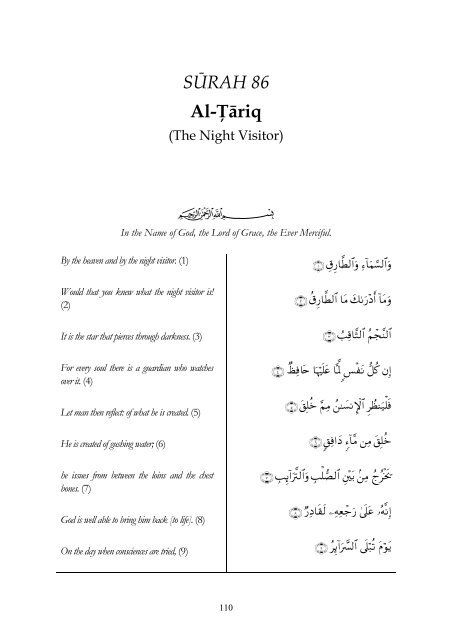 SŪRAH 86
Al-Ṭāriq
(The Night Visitor)
بِسْمِ ٱللَّهِ ٱلرَّحْمَٰنِ ٱلرَّحِيمِ
In the Name of God, the Lord of Grace, the Ever Merciful.
By the heaven and by the night visitor. (1)
وَٱلسَّمَآءِ وَٱلطَّارِقِ ۝١
Would that you knew what the night visitor is!
(2)
وَمَآ أَدْرَىٰكَ مَا ٱلطَّارِقُ ۝٢
It is the star that pierces through darkness. (3)
ٱلنَّجْمُ ٱلثَّاقِبُ ۝٣
For every soul there is a guardian who watches
over it. (4)
إِن كُلُّ نَفْسٍ لَّمَّا عَلَيْهَا حَافِظٌ ۝٤
Let man then reflect: of what he is created. (5)
فَلْيَنظُرِ ٱلْإِنسَٰنُ مِمَّ خُلِقَ ۝٥
He is created of gushing water; (6)
خُلِقَ مِن مَّآءٍ دَافِقٍ ۝٦
he issues from between the loins and the chest
bones. (7)
يَخْرُجُ مِنۢ بَيْنِ ٱلصُّلْبِ وَٱلتَّرَآئِبِ ۝٧
God is well able to bring him back [to life]. (8)
إِنَّهُۥ عَلَىٰ رَجْعِهِۦ لَقَادِرٌ ۝٨
On the day when consciences are tried, (9)
يَوْمَ تُبْلَى ٱلسَّرَآئِرُ ۝٩
110